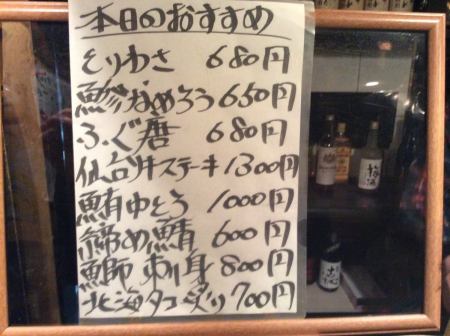 本日のおすすめ
とりわさ 680円
鯵なめろう 650円
ふぐ唐 680円
仙台牛ステーキ 1300円
鮪中とろ 1000円
締め鯖 600円
鰤刺身 800円
北海タコ炙り 700円
梅酒